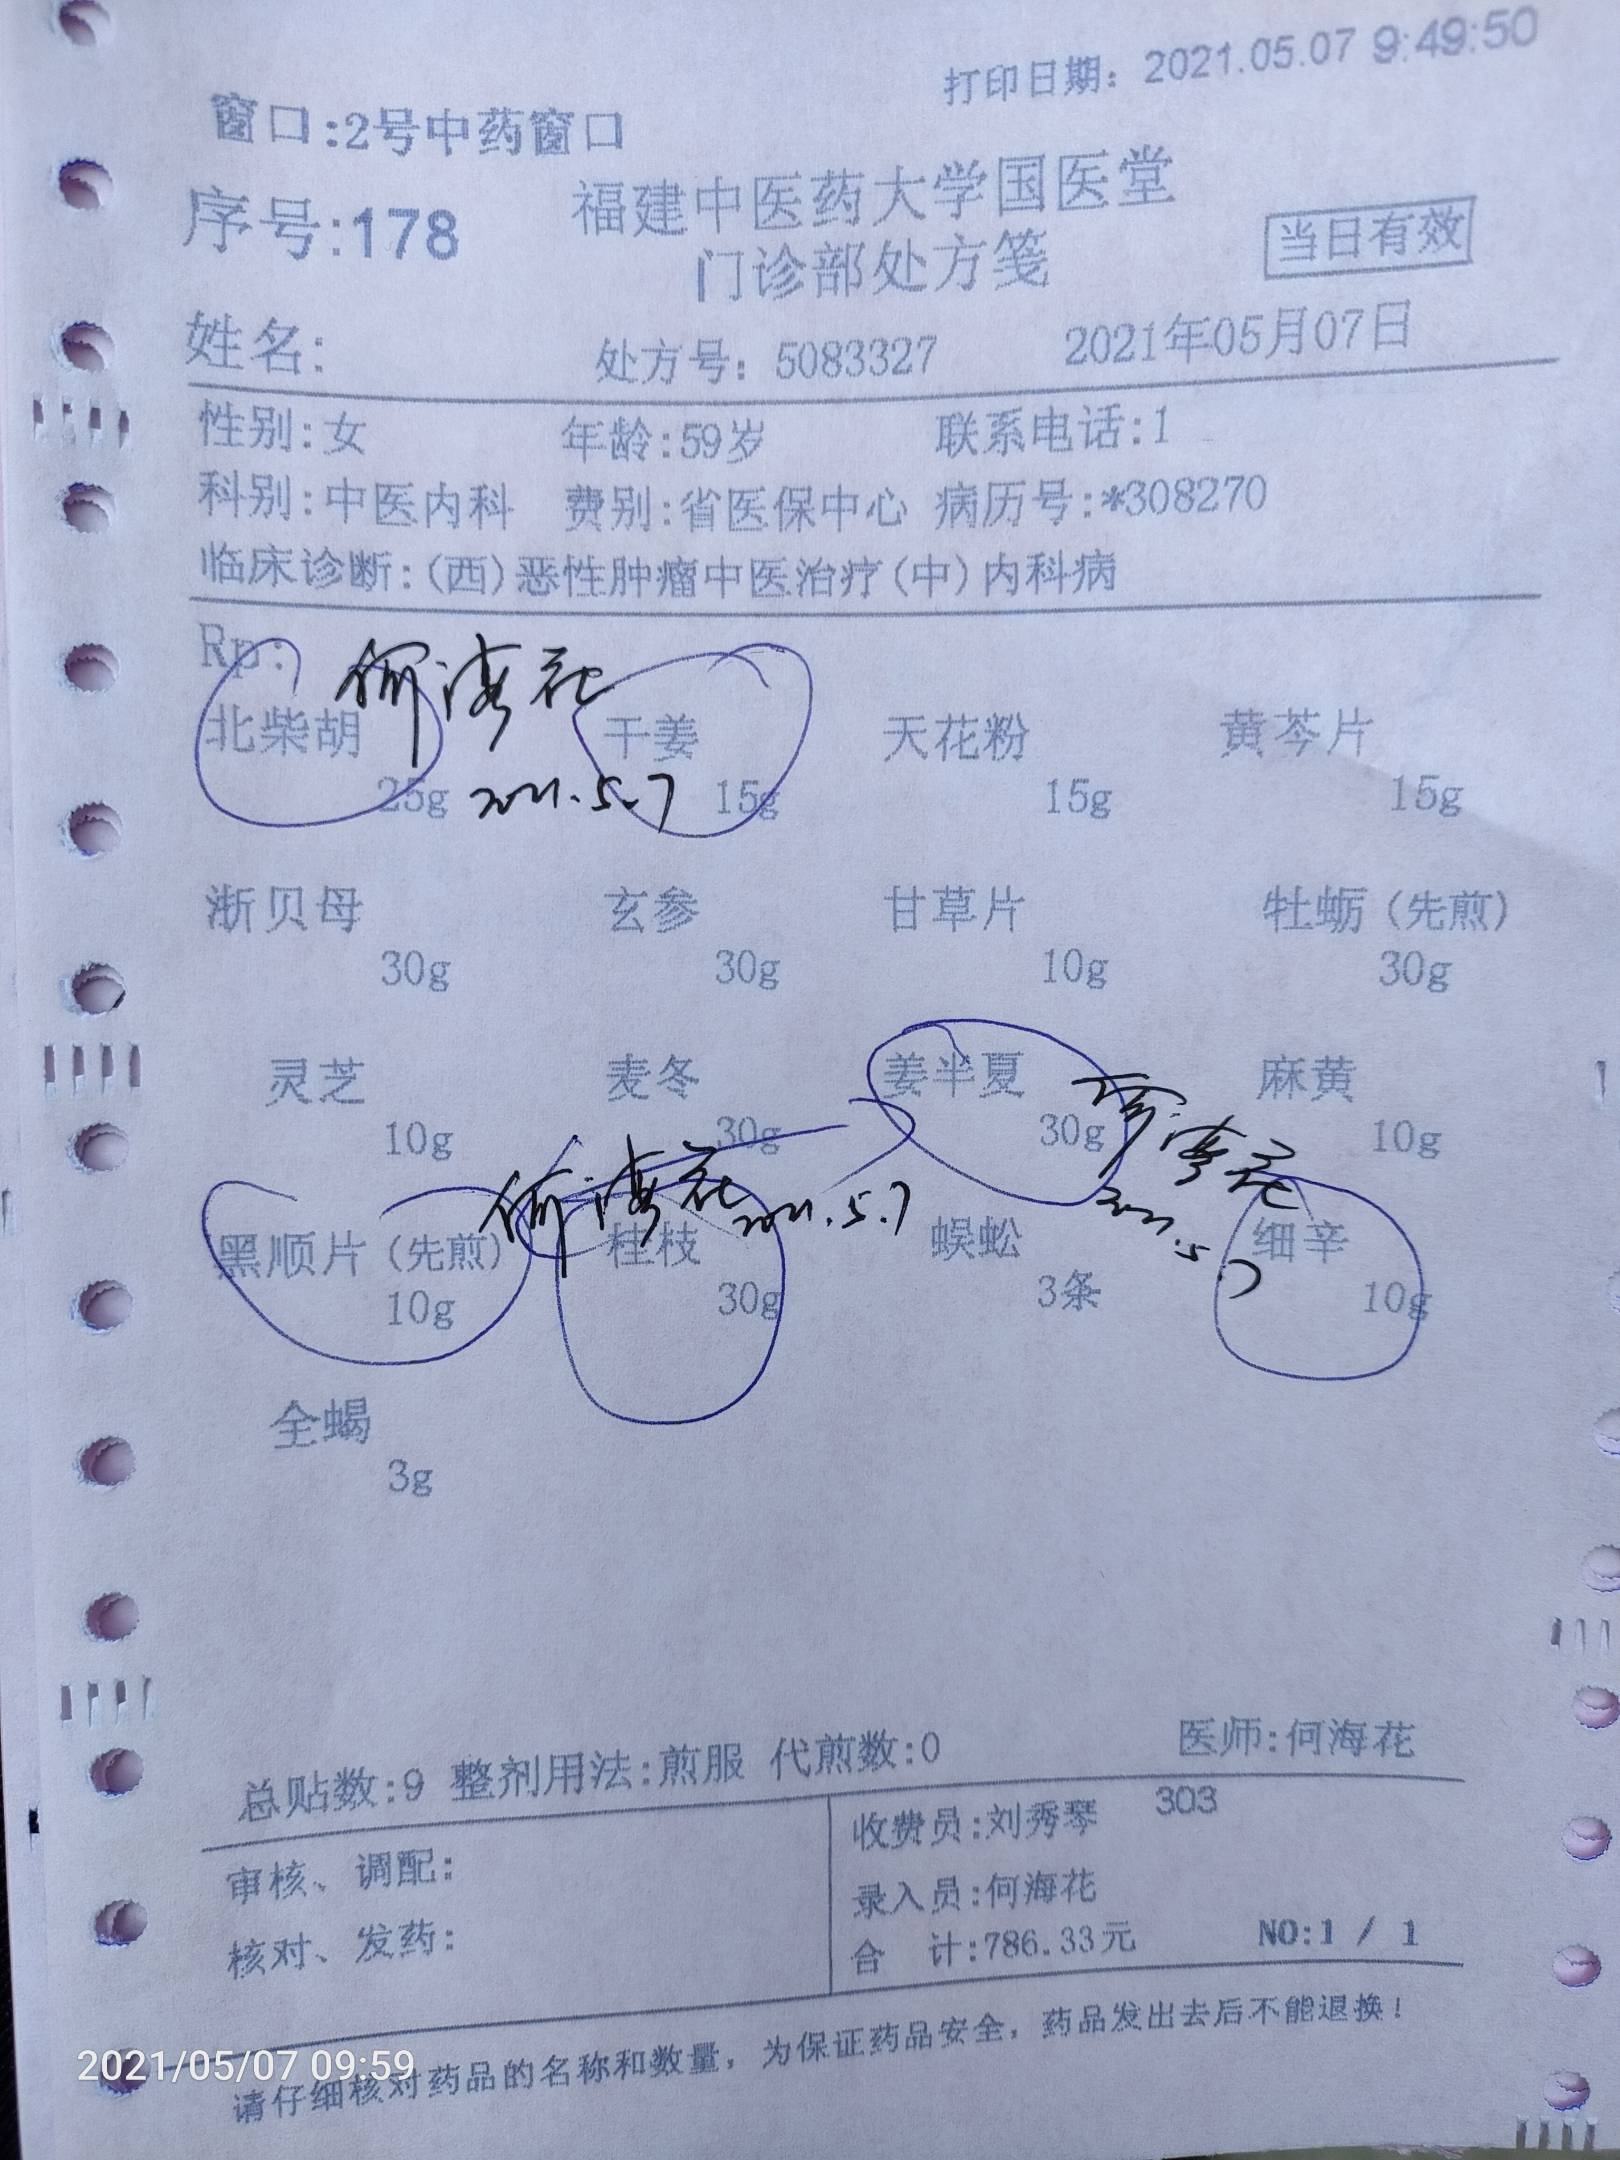 打印日期：2021.05.07 9:49:50
窗口:2号中药窗口
序号:178
福建中医药大学国医堂
门诊部处方笺
当日有效
姓名: 处方号：5083327 2021年05月07日
性别:女 年龄:59岁 联系电话:1
科别:中医内科 费别:省医保中心 病历号:*308270
临床诊断:(西)恶性肿瘤中医治疗(中)内科病
Rp:
何海花
北柴胡 干姜 天花粉 黄芩片
25g 15g 15g 15g
2021.5.7
浙贝母 玄参 甘草片 牡蛎(先煎)
30g 30g 10g 30g
灵芝 麦冬 姜半夏 麻黄
10g 30g 30g 10g
何海花 2021.5.7
何海花 2021.5.7
黑顺片(先煎) 桂枝 蜈蚣 细辛
10g 30g 3条 10g
全蝎
3g
总贴数:9 整剂用法:煎服 代煎数:0 医师:何海花
303
审核、调配:
核对、发药:
收费员:刘秀琴
录入员:何海花
合 计:786.33元 NO:1 / 1
请仔细核对药品的名称和数量，为保证药品安全，药品发出去后不能退换！
2021/05/07 09:59